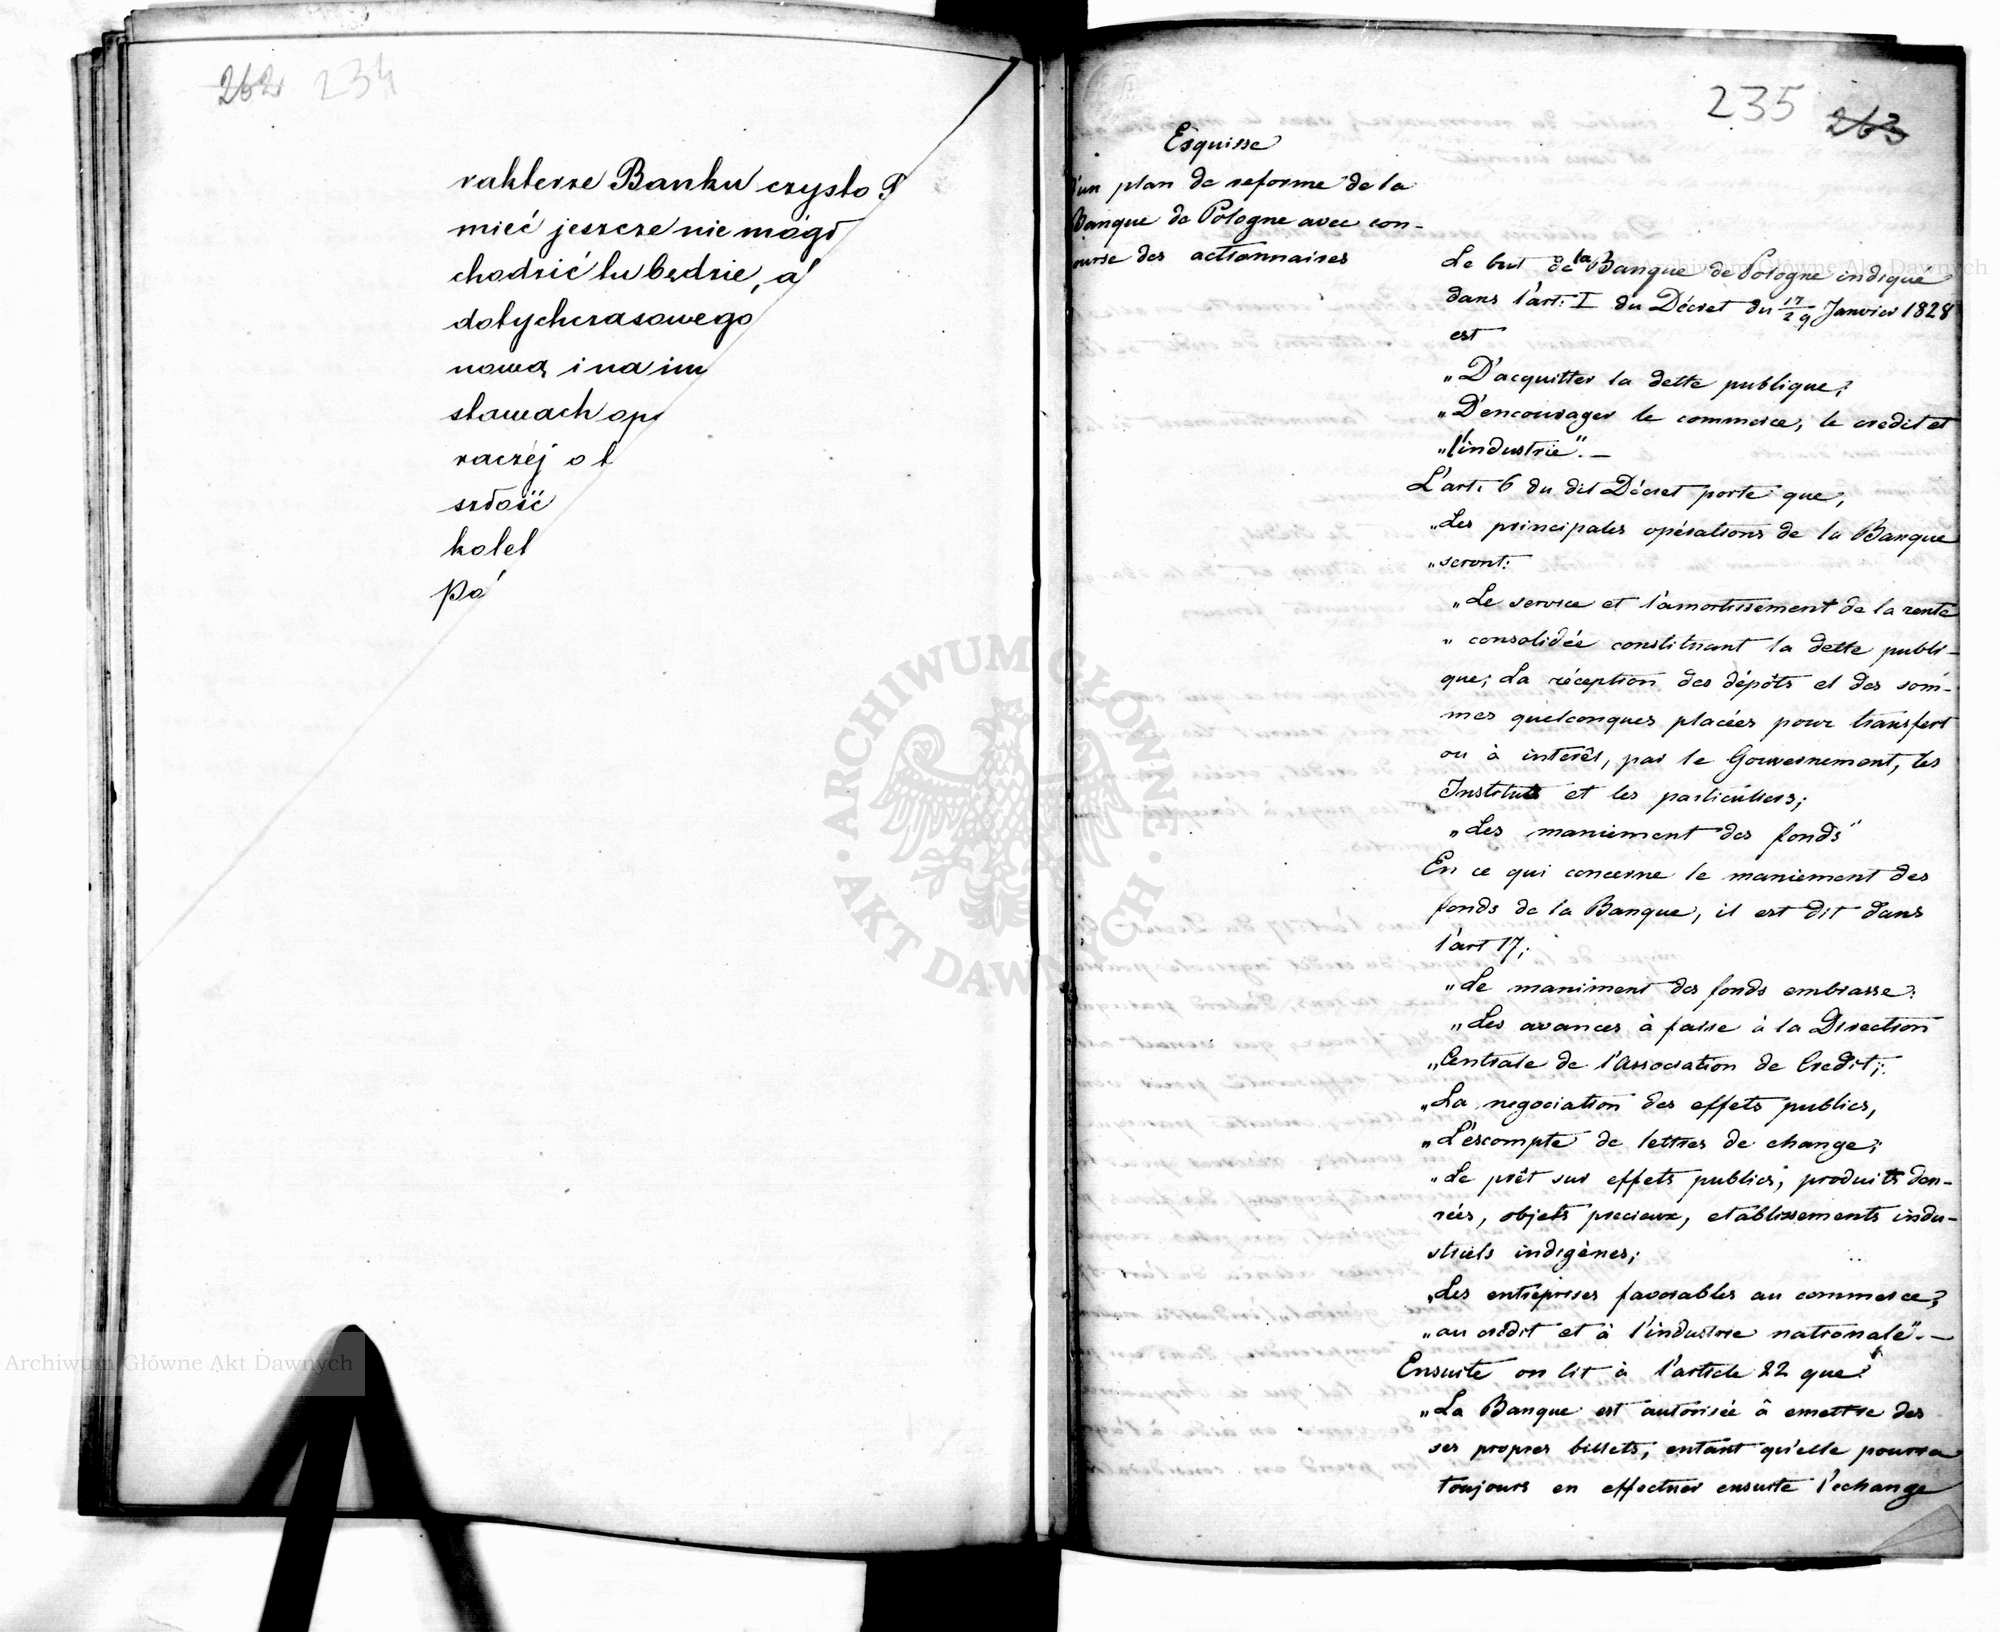 262 234
rakterze Banku czysto P
mieć jeszcze nie mógł
chodzić tu będzie, a
dotychczasowego
nową i na in
stawach op
raczéj o t
szłość
kolei
po
235 263
Esquisse
d'un plan de reforme de la
Banque de Pologne avec con-
ourse des actionnaires
Le but de la Banque de Pologne indique
dans l'art: I du Décret du 17/29 Janvier 1828
est
„D'acquitter la dette publique;
„D'encourager le commerce, le credit et
„l'industrie". —
L'art. 6 du dit Décret porte que;
„Les principales opérations de la Banque
„seront:
„Le service et l'amortissement de la rente
„ consolidée constituant la dette publi-
que; La réception des dépôts et des som-
mes quelconques placées pour transfert
ou à interêt, par le Gouvernement, les
Instituts et les particuliers;
„Les maniement des fonds"
En ce qui concerne le maniement des
fonds de la Banque, il est dit dans
l'art 17;
„Le maniment des fonds embrasse:
„Les avances à faire à la Direction
„Centrale de l'Association de Credit;
„La negociation des effets publics,
„L'escompte de lettres de change;
„Le prêt sur effets publics, produits den-
rées, objets precieux, etablissements indu-
striels indigènes;
„Les entreprises favorables au commerce,
„au crédit et à l'industrie nationale". —
Ensuite on lit à l'article 22 que:
„La Banque est autorisée à emettre des
ses propres billets, entant qu'elle pourra
toujours en effectuer ensuite l'echange
ARCHIWUM GŁÓWNE AKT DAWNYCH
Archiwum Główne Akt Dawnych
Archiwum Główne Akt Dawnych